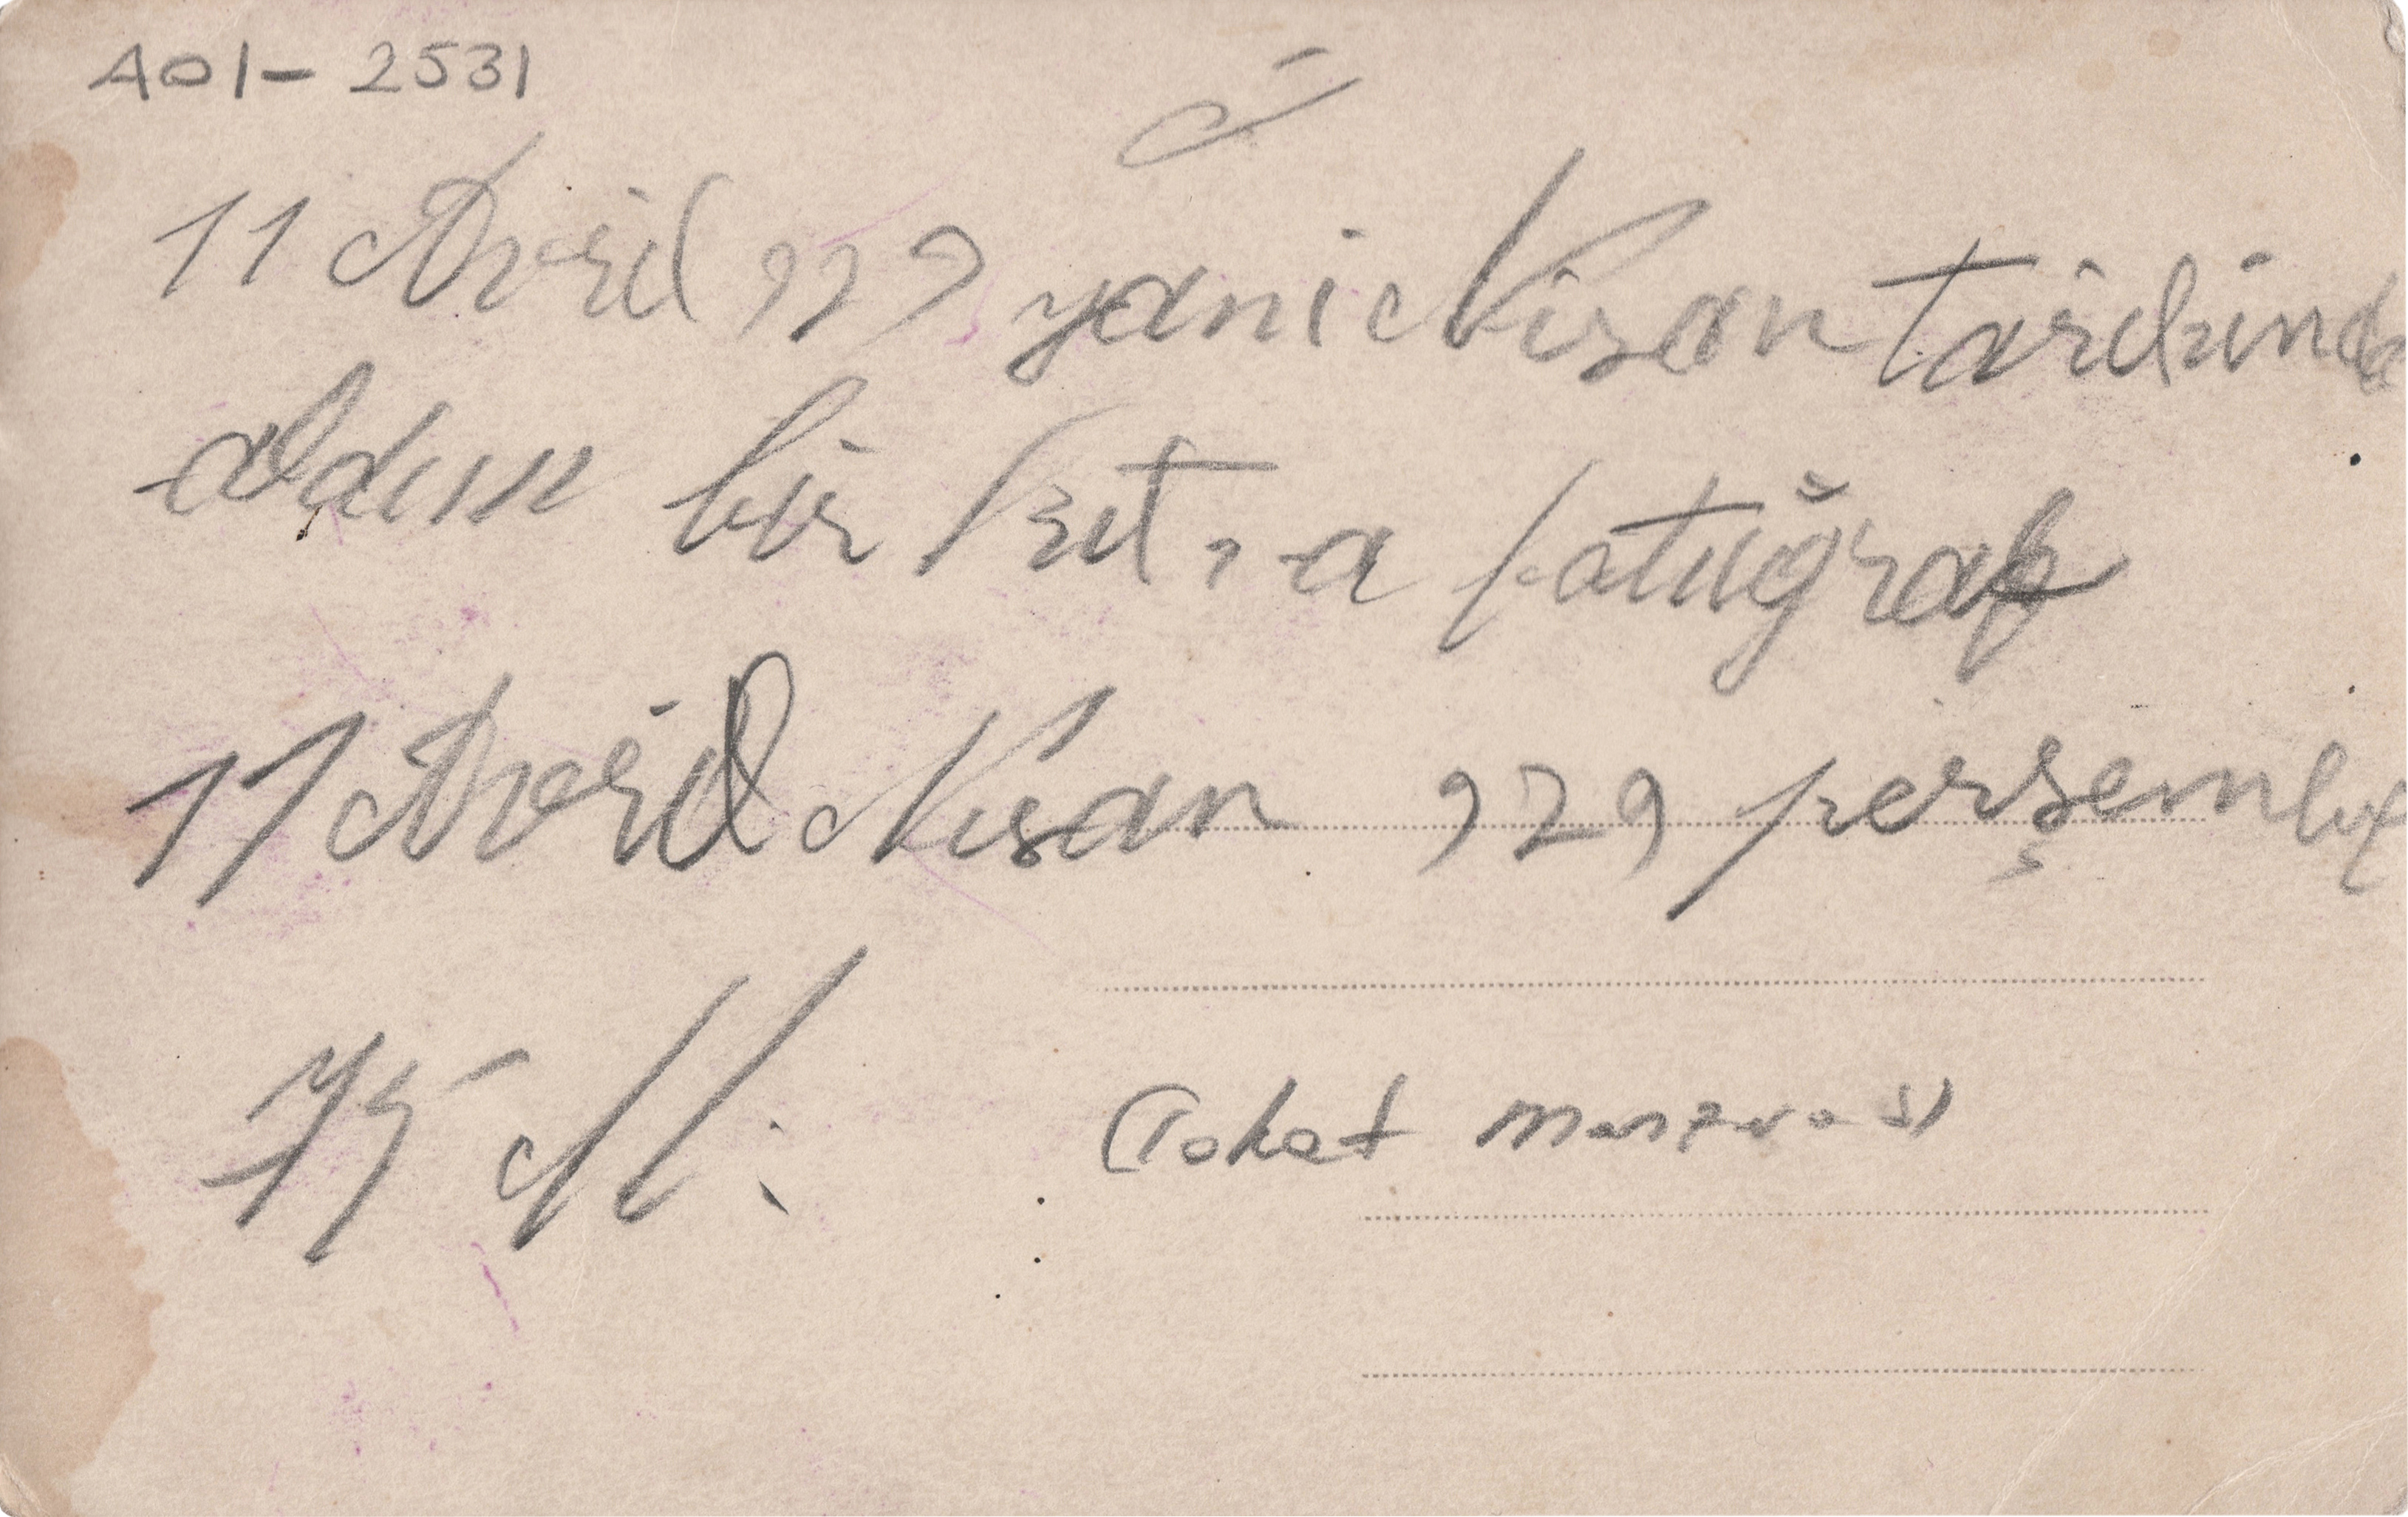 A01-2531
11 Avril 929 yani Nisan tarihinde
aldım bir kıt,a fotuğraf
11 Avril Nisan 929 perşembe
(Tokat manzarası)